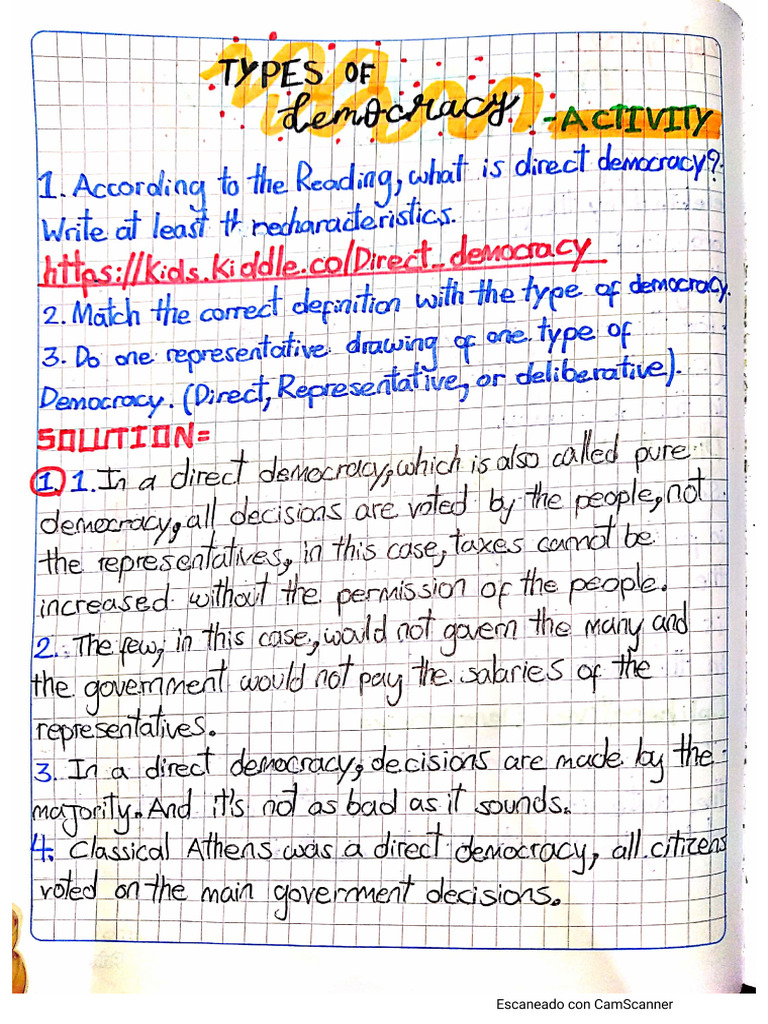 TYPES OF
democracy -ACTIVITY
1. According to the Reading, what is direct democracy?
Write at least th recharacteristics.
https://kids.kiddle.co/Direct_democracy
2. Match the correct definition with the type of democracy.
3. Do one representative drawing of one type of
Democracy. (Direct, Representative, or deliberative).
SOLUTION=
1 1. In a direct democracy, which is also called pure
democracy, all decisions are voted by the people, not
the representatives, in this case, taxes cannot be
increased without the permission of the people.
2. The few, in this case, would not govern the many and
the government would not pay the salaries of the
representatives.
3. In a direct democracy, decisions are made by the
majority. And it's not as bad as it sounds.
4. Classical Athens was a direct democracy, all citizens
voted on the main government decisions.
Escaneado con CamScanner